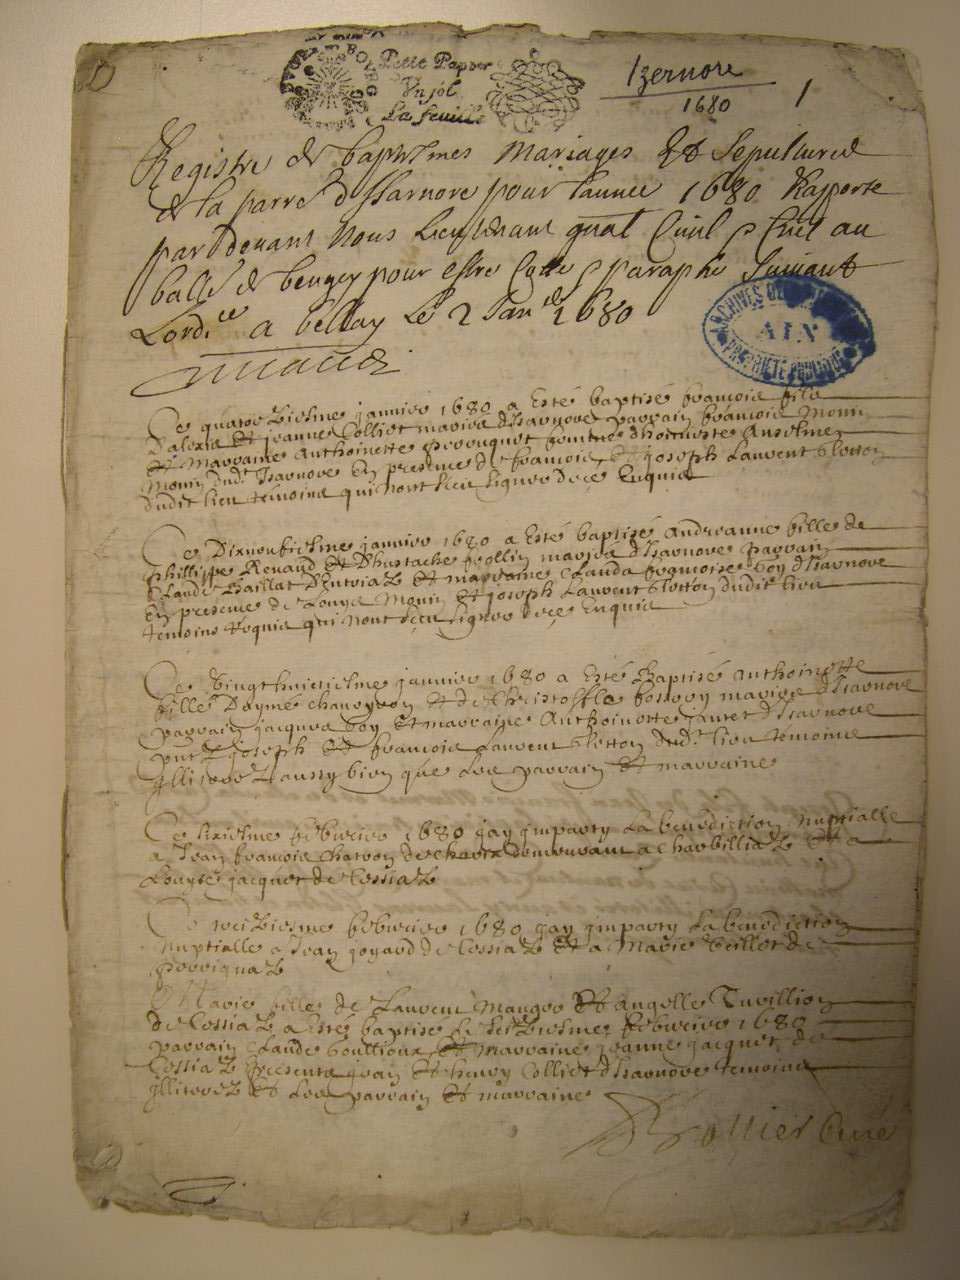 Petit Papper
Un sol
La feuille
Izernore
1680
1
Registre de baptesmes Mariages Et Sepultures
de la parre d Isarnore pour lannee 1680 Rapporte
pardevant Nous Lieutenant gnal Civil &
balle de beugey pour estre Cotte & paraphe Suivant
Lord.ce a belley le 2 Jan 1680
ARCHIVES DE
AIN
PROPRIETE PUBLIQUE
Ce quatorziesme janvier 1680 a Esté baptisé francois fils
dalexis Et jeanne Colliet mariés dIsarnore parrain francois Monin
Et Marraine Anthoinette femme dhonneste Anselme
Monin dud. Isarnore En presence de francois, Et joseph Laurent Clotton
dudit lieu temoins qui nont sceu signer de ce Enquis
Ce Dixneufiesme janvier 1680 a Esté baptisé Andreanne fille de
phillippe Renaud Et Dhustache mariés dIsarnore parrain
Claude Baillat Et marraine Clauda francoise Goy dIsarnore
En presence de Louys Monin Et joseph Laurent Clotton dudit lieu
temoins Requis qui nont sceu signer de ce Enquis
Ce Vingthuictiesme janvier 1680 a Esté Baptisé Anthoinette
fille Daymé Et de Christoffle mariés dIsarnore
parrain jacques Goy Et marraine Anthoinette dIsarnore
pnt joseph Et francois Laurent Clotton dud. lieu temoins
illiterez aussy bien que Les parrain Et marraine
Ce sixiesme febvrier 1680 jay imparty La benediction Nuptialle
a Jean francois Charvon de demeurant a Charbilliaz Et a
Louyse jacquet de Cessiaz
Ce febvrier 1680 jay imparty La benediction
Nuptialle a Jean joyard de Cessiaz Et a Marie de
perrignaz
Marie fille de Laurent Manger Et Angelle Tuvillion
de Cessiaz a Esté baptise le seiziesme febvrier 1680
parrain Claude Goullioux Et marraine jeanne jacquet de
Cessiaz presents jean Et henry Colliet dIsarnore temoins
illiterez Et Les parrain Et marraine
Rollier Curé